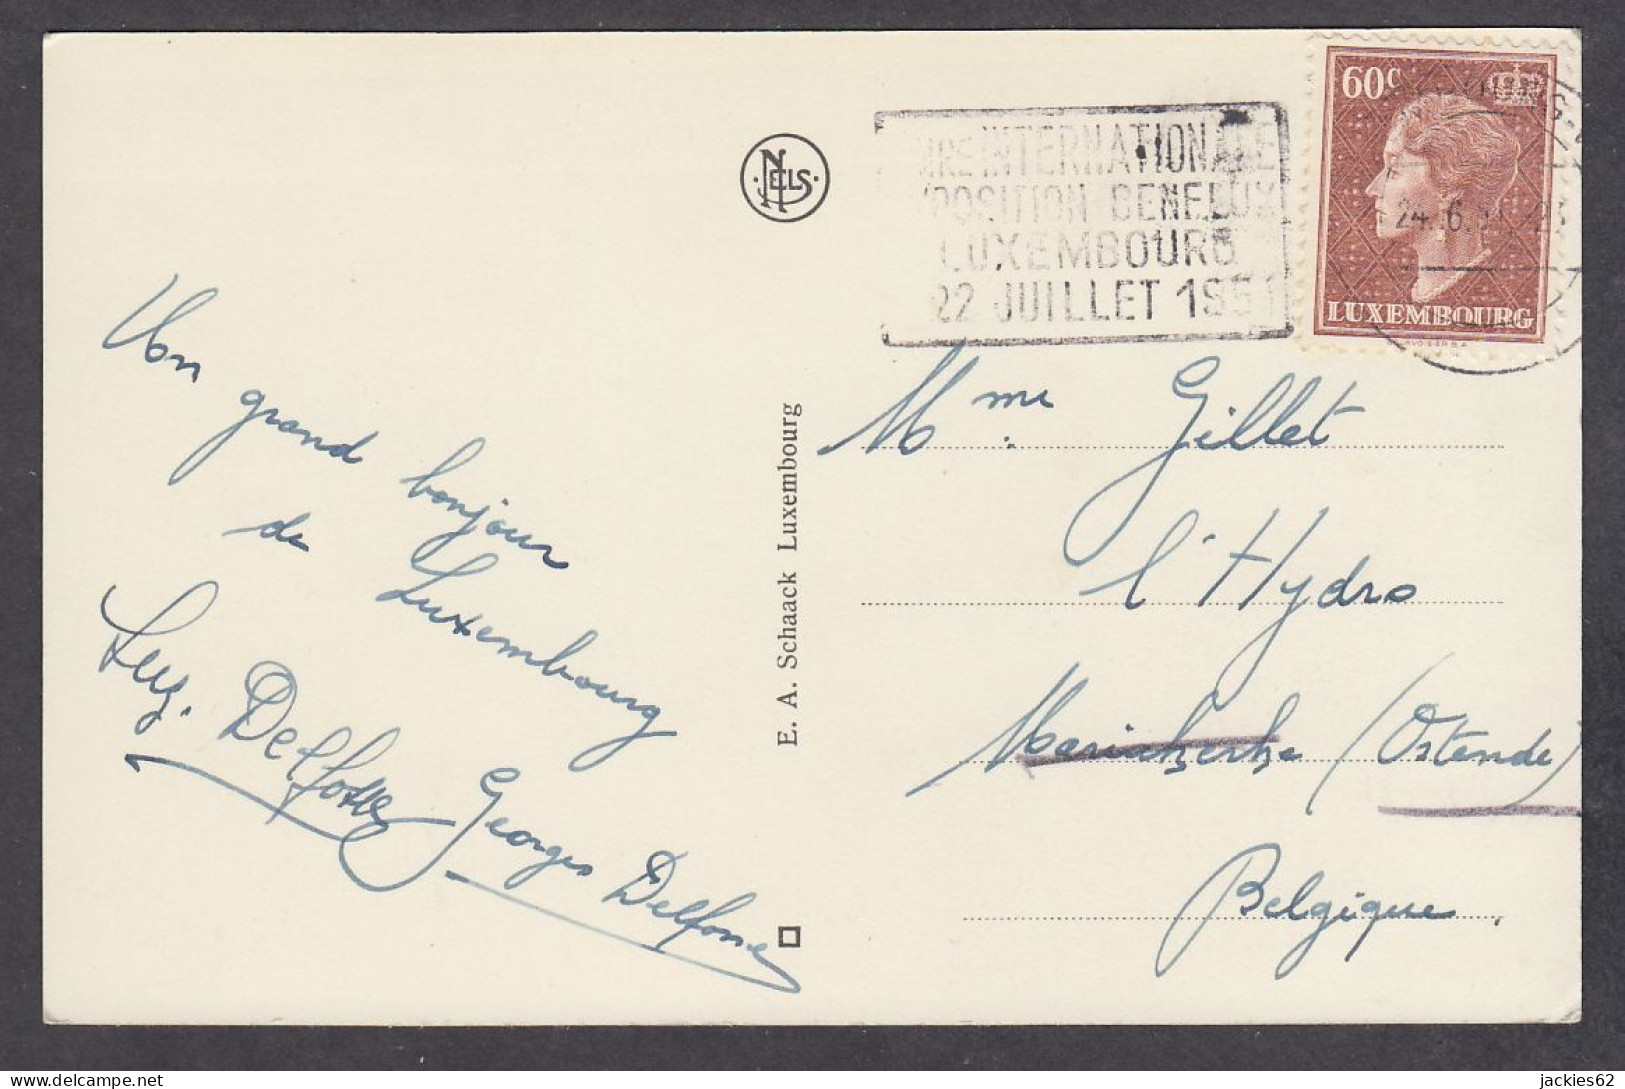 60c
LUXEMBOURG
24.6.51
INTERNATIONALE
POSITION BENELUX
LUXEMBOURG
22 JUILLET 1951
NELS
Un grand bonjour
de Luxembourg
Delfosse
Georges Delfosse
E. A. Schaack Luxembourg
Mme Gillet
l'Hydro
Mariakerke (Ostende)
Belgique.
jackies62